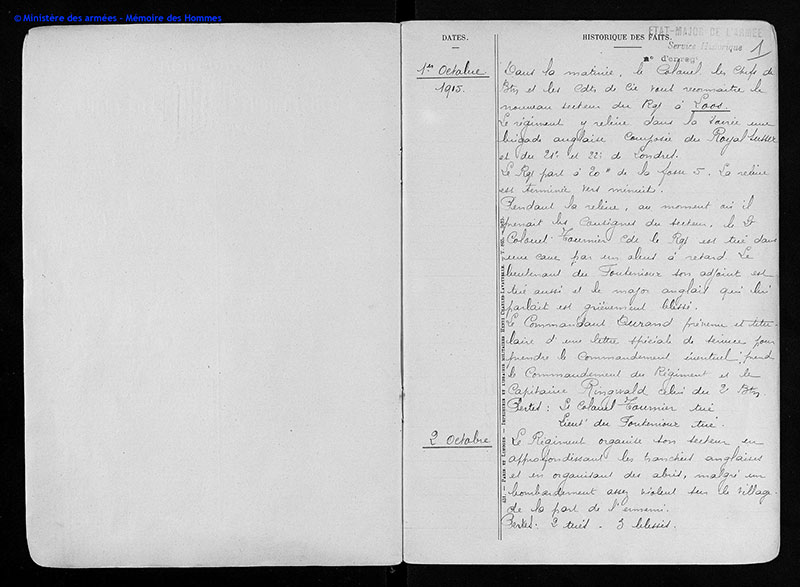 © Ministère des armées - Mémoire des Hommes
DATES.
HISTORIQUE DES FAITS.
ETAT-MAJOR DE L'ARMÉE
Service Historique
n° d'enreg
1
1er Octobre
1915.
Dans la matinée, le Colonel, les Chefs de
Btns et les Cdts de Cie vont reconnaitre le
nouveau secteur du Rgt à Loos.
Le régiment y relève dans la soirée une
brigade anglaise composée du Royal Sussex
et du 21e et 22e de Londres.
Le Rgt part à 20h de la fosse 5. La relève
est terminée vers minuit.
Pendant la relève, au moment où il
prenait les consignes du secteur, le Lt
Colonel Tournier Cdt le Rgt est tué dans
une cave par un obus à retard. Le
lieutenant du Fontenioux son adjoint est
tué aussi et le major anglais qui lui
parlait est grièvement blessé.
Le Commandant Durand prévenu et titu-
laire d'une lettre spéciale de service pour
prendre le Commandement éventuel, prend
le Commandement du Régiment et le
Capitaine Ringwald celui du 2e Btn
Pertes : Lt Colonel Tournier tué
Lieut' du Fontenioux tué.
2 Octobre
Le Régiment organise son secteur en
approfondissant les tranchées anglaises
et en organisant des abris, malgré un
bombardement assez violent sur le village
de la part de l'ennemi.
Pertes: 2 tués - 3 blessés.